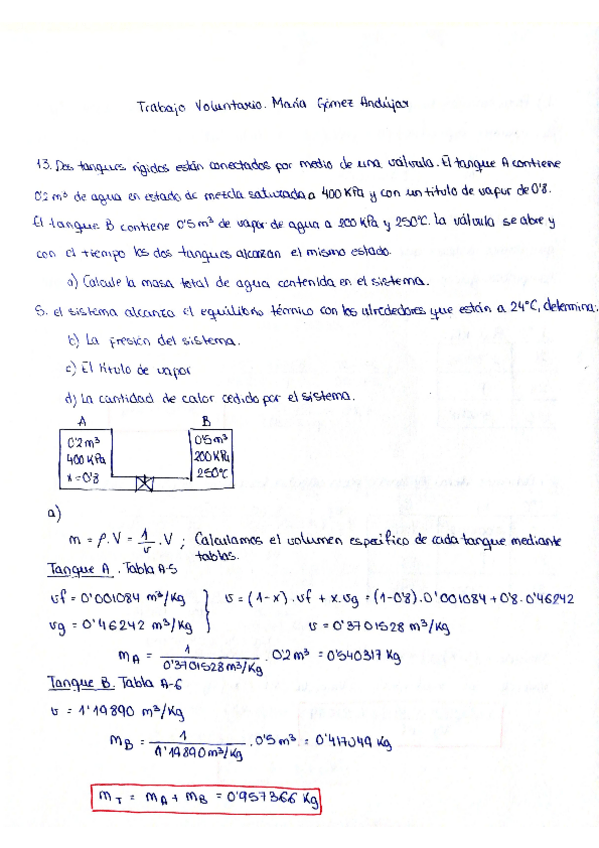 Trabajo Voluntario. María Gómez Andújar
13. Dos tanques rígidos están conectados por medio de una válvula. El tanque A contiene
0'2 m³ de agua en estado de mezcla saturada a 400 KPa y con un titulo de vapor de 0'8.
El tanque B contiene 0'5 m³ de vapor de agua a 200 KPa y 250ºC. La válvula se abre y
con el tiempo los dos tanques alcanzan el mismo estado.
a) Calcule la masa total de agua contenida en el sistema.
S. el sistema alcanza el equilibrio térmico con los alrededores que están a 24°C, determina:
b) La presión del sistema.
c) El título de vapor
d) La cantidad de calor cedido por el sistema.
A B
0'2 m³ 0'5 m³
400 KPa 200 KPa
x = 0'8 250ºC
a)
m = ρ.V = 1/v . V ; Calculamos el volumen específico de cada tanque mediante
tablas.
Tanque A . Tabla A-5
vf = 0'001084 m³/Kg } v = (1-x) . vf + x.vg = (1-0'8).0'001084 + 0'8.0'46242
vg = 0'46242 m³/Kg v = 0'3701528 m³/Kg
mA = 1/0'3701528 m³/Kg . 0'2 m³ = 0'540317 Kg
Tanque B. Tabla A-6
v = 1'19890 m³/Kg
mB = 1/1'19890 m³/Kg . 0'5 m³ = 0'417049 Kg
mT = mA + mB = 0'957366 Kg